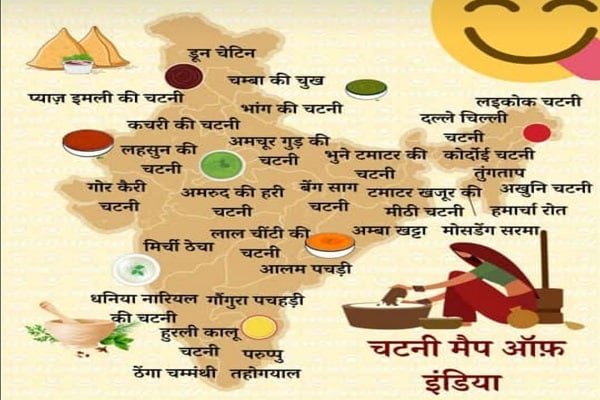 डून चेटिन
चम्बा की चुख
प्याज़ इमली की चटनी
भांग की चटनी
लइकोक चटनी
दल्ले चिल्ली
चटनी
कचरी की चटनी
अमचूर गुड़ की
चटनी
लहसुन की
चटनी
भुने टमाटर की
चटनी
कोर्दोई चटनी
तुंगताप
गोर कैरी
चटनी
अमरुद की हरी
चटनी
बेंग साग
चटनी
टमाटर खजूर की
मीठी चटनी
अखुनि चटनी
हमार्चा रोत
मिर्ची ठेचा
लाल चींटी की
चटनी
अम्बा खट्टा
मोसडेंग सरमा
आलम पचड़ी
धनिया नारियल
की चटनी
गौंगुरा पचहड़ी
हुरली कालू
चटनी
परुप्पु
तहोगयाल
ठेंगा चम्मंथी
चटनी मैप ऑफ़
इंडिया